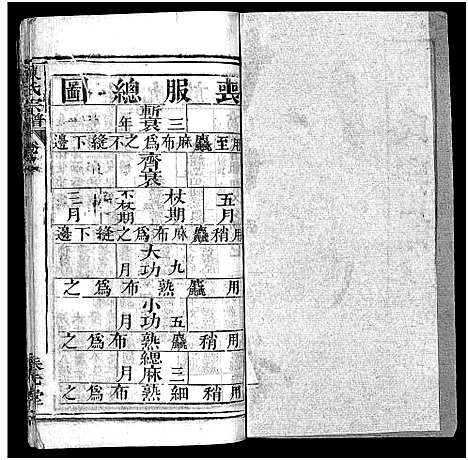 喪服總圖
斬衰三年
用至麤麻布為之不縫下邊
齊衰
五月 杖期 不杖期 三月
用稍麤麻布為之縫下邊
大功九月
用麤熟布為之
小功五月
用稍麤熟布為之
緦麻三月
用稍細熟布為之
陳氏宗譜